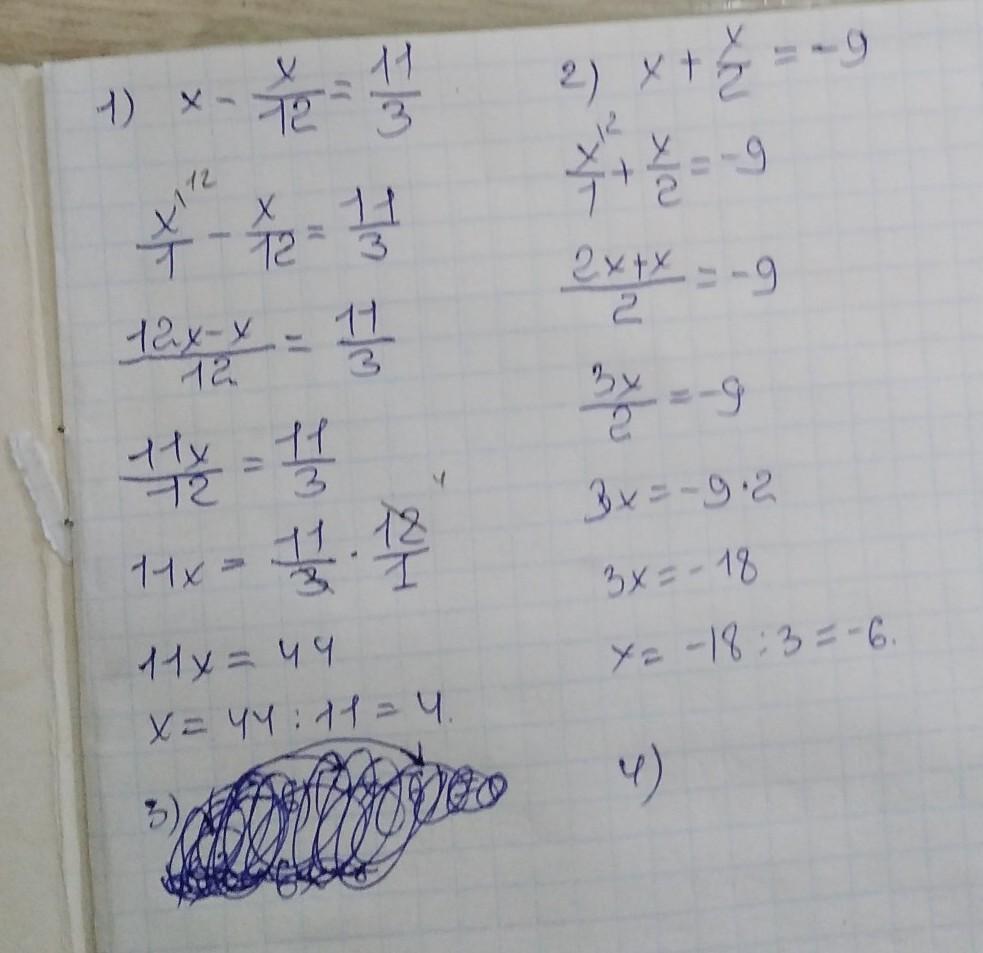 1) x - x/12 = 11/3
x^12/1 - x/12 = 11/3
12x-x/12 = 11/3
11x/12 = 11/3
11x = 11/3 · 12/1 4
11x = 44
x = 44 : 11 = 4.
3)
2) x + x/2 = -9
x^2/1 + x/2 = -9
2x+x/2 = -9
3x/2 = -9
3x = -9·2
3x = -18
x = -18 : 3 = -6.
4)